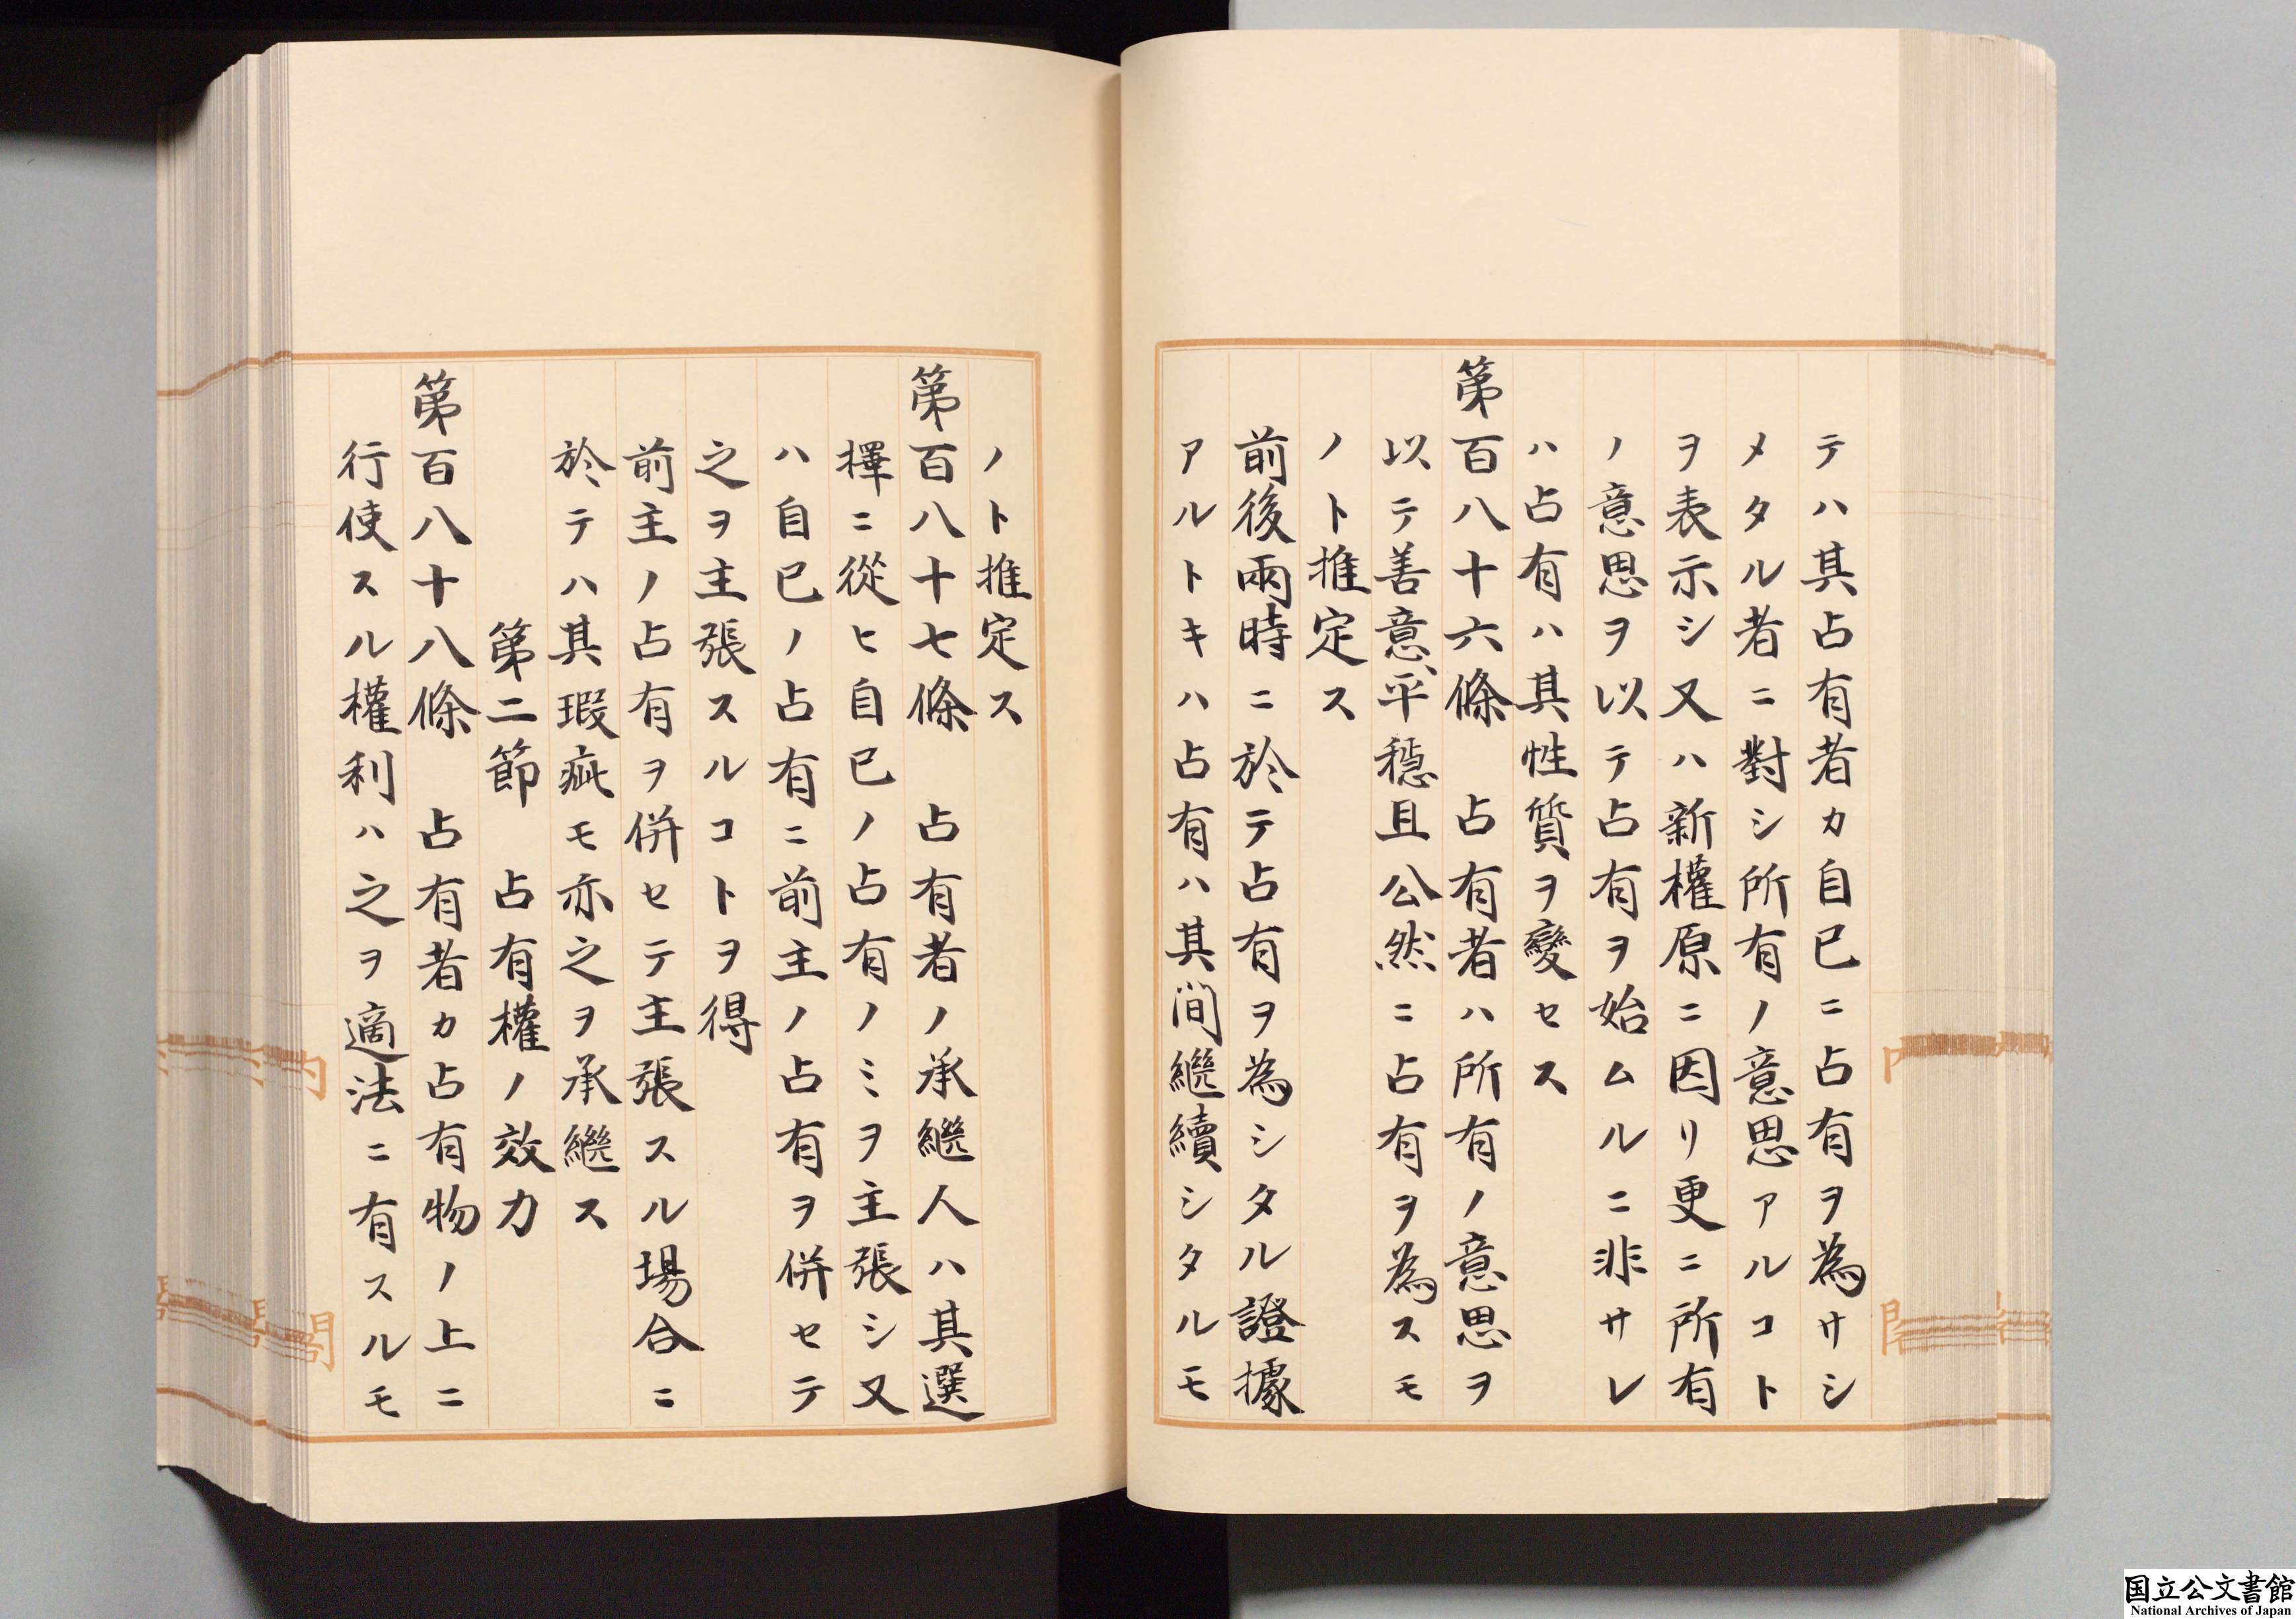 テハ其占有者カ自己ニ占有ヲ為サシ
メタル者ニ對シ所有ノ意思アルコト
ヲ表示シ又ハ新權原ニ因リ更ニ所有
ノ意思ヲ以テ占有ヲ始ムルニ非サレ
ハ占有ハ其性質ヲ變セス
第百八十六條　占有者ハ所有ノ意思ヲ
以テ善意、平穩且公然ニ占有ヲ為スモ
ノト推定ス
前後兩時ニ於テ占有ヲ為シタル證據
アルトキハ占有ハ其間繼續シタルモ
ノト推定ス
第百八十七條　占有者ノ承繼人ハ其選
擇ニ從ヒ自己ノ占有ノミヲ主張シ又
ハ自己ノ占有ニ前主ノ占有ヲ併セテ
之ヲ主張スルコトヲ得
前主ノ占有ヲ併セテ主張スル場合ニ
於テハ其瑕疵モ亦之ヲ承繼ス
第二節　占有權ノ效力
第百八十八條　占有者カ占有物ノ上ニ
行使スル權利ハ之ヲ適法ニ有スルモ
内
閣
国立公文書館
National Archives of Japan